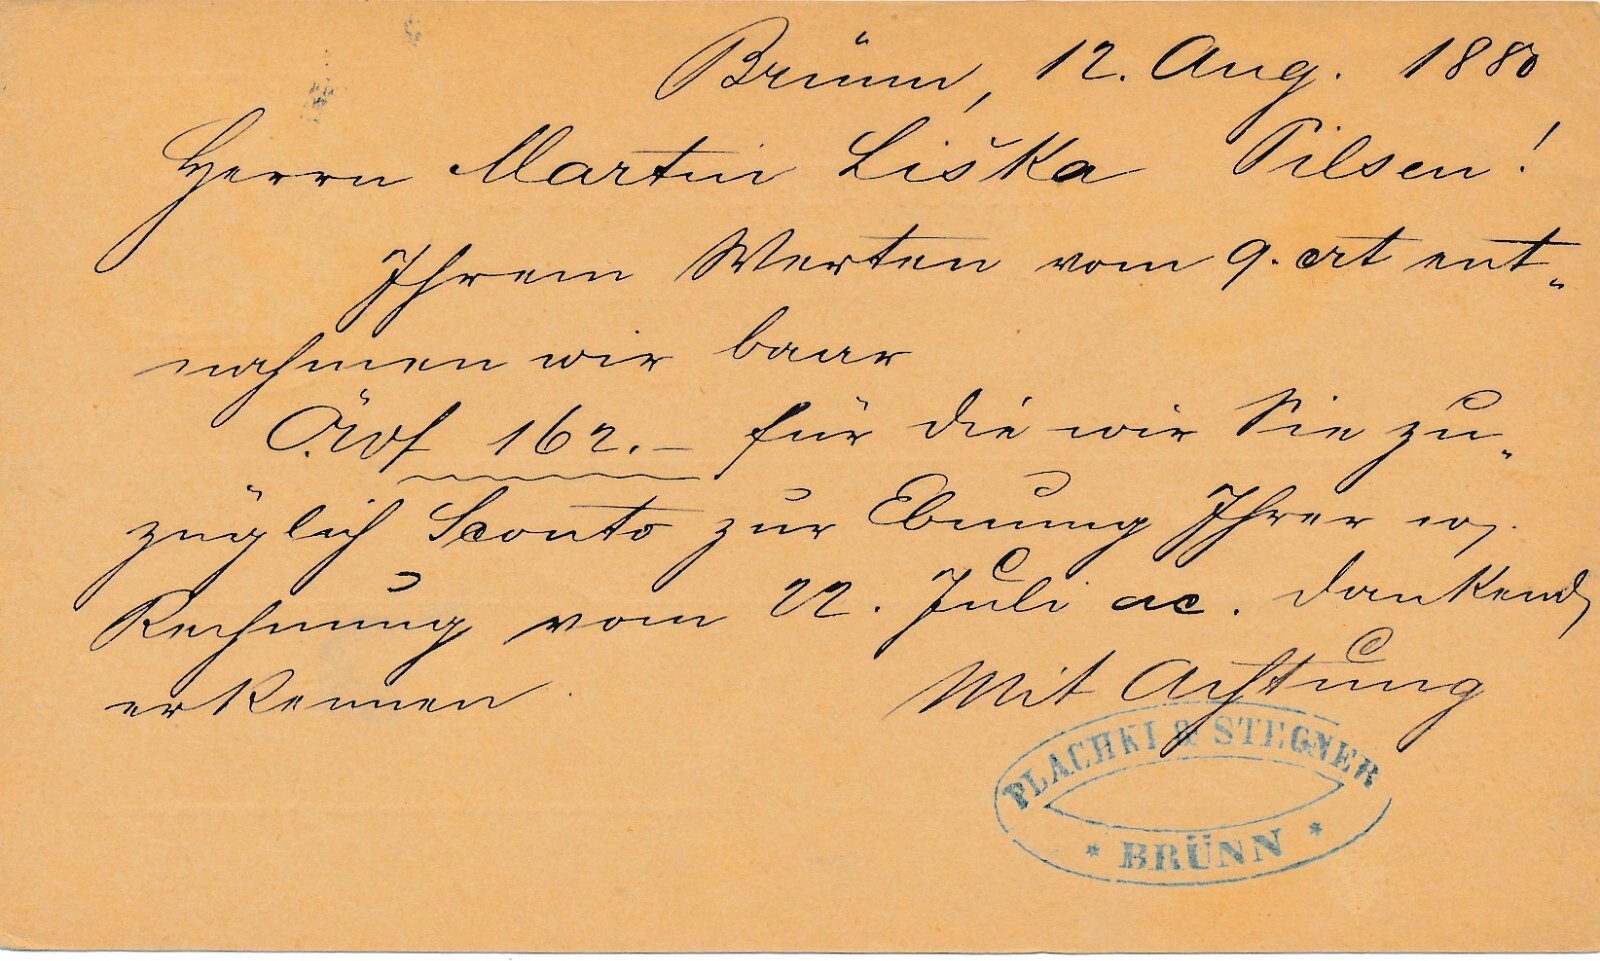 Brünn, 12. Aug. 1880
Herrn Martin Liška Pilsen!
Ihrem Werten vom 9. crt ent-
nahmen wir baar
162.– für die wir Sie zu-
züglich Sconto zur Ebnung Ihrer
Rechnung vom 22. Juli ac. dankend
erkennen.
Mit Achtung
PLACHKI & STEGNER
* BRÜNN *